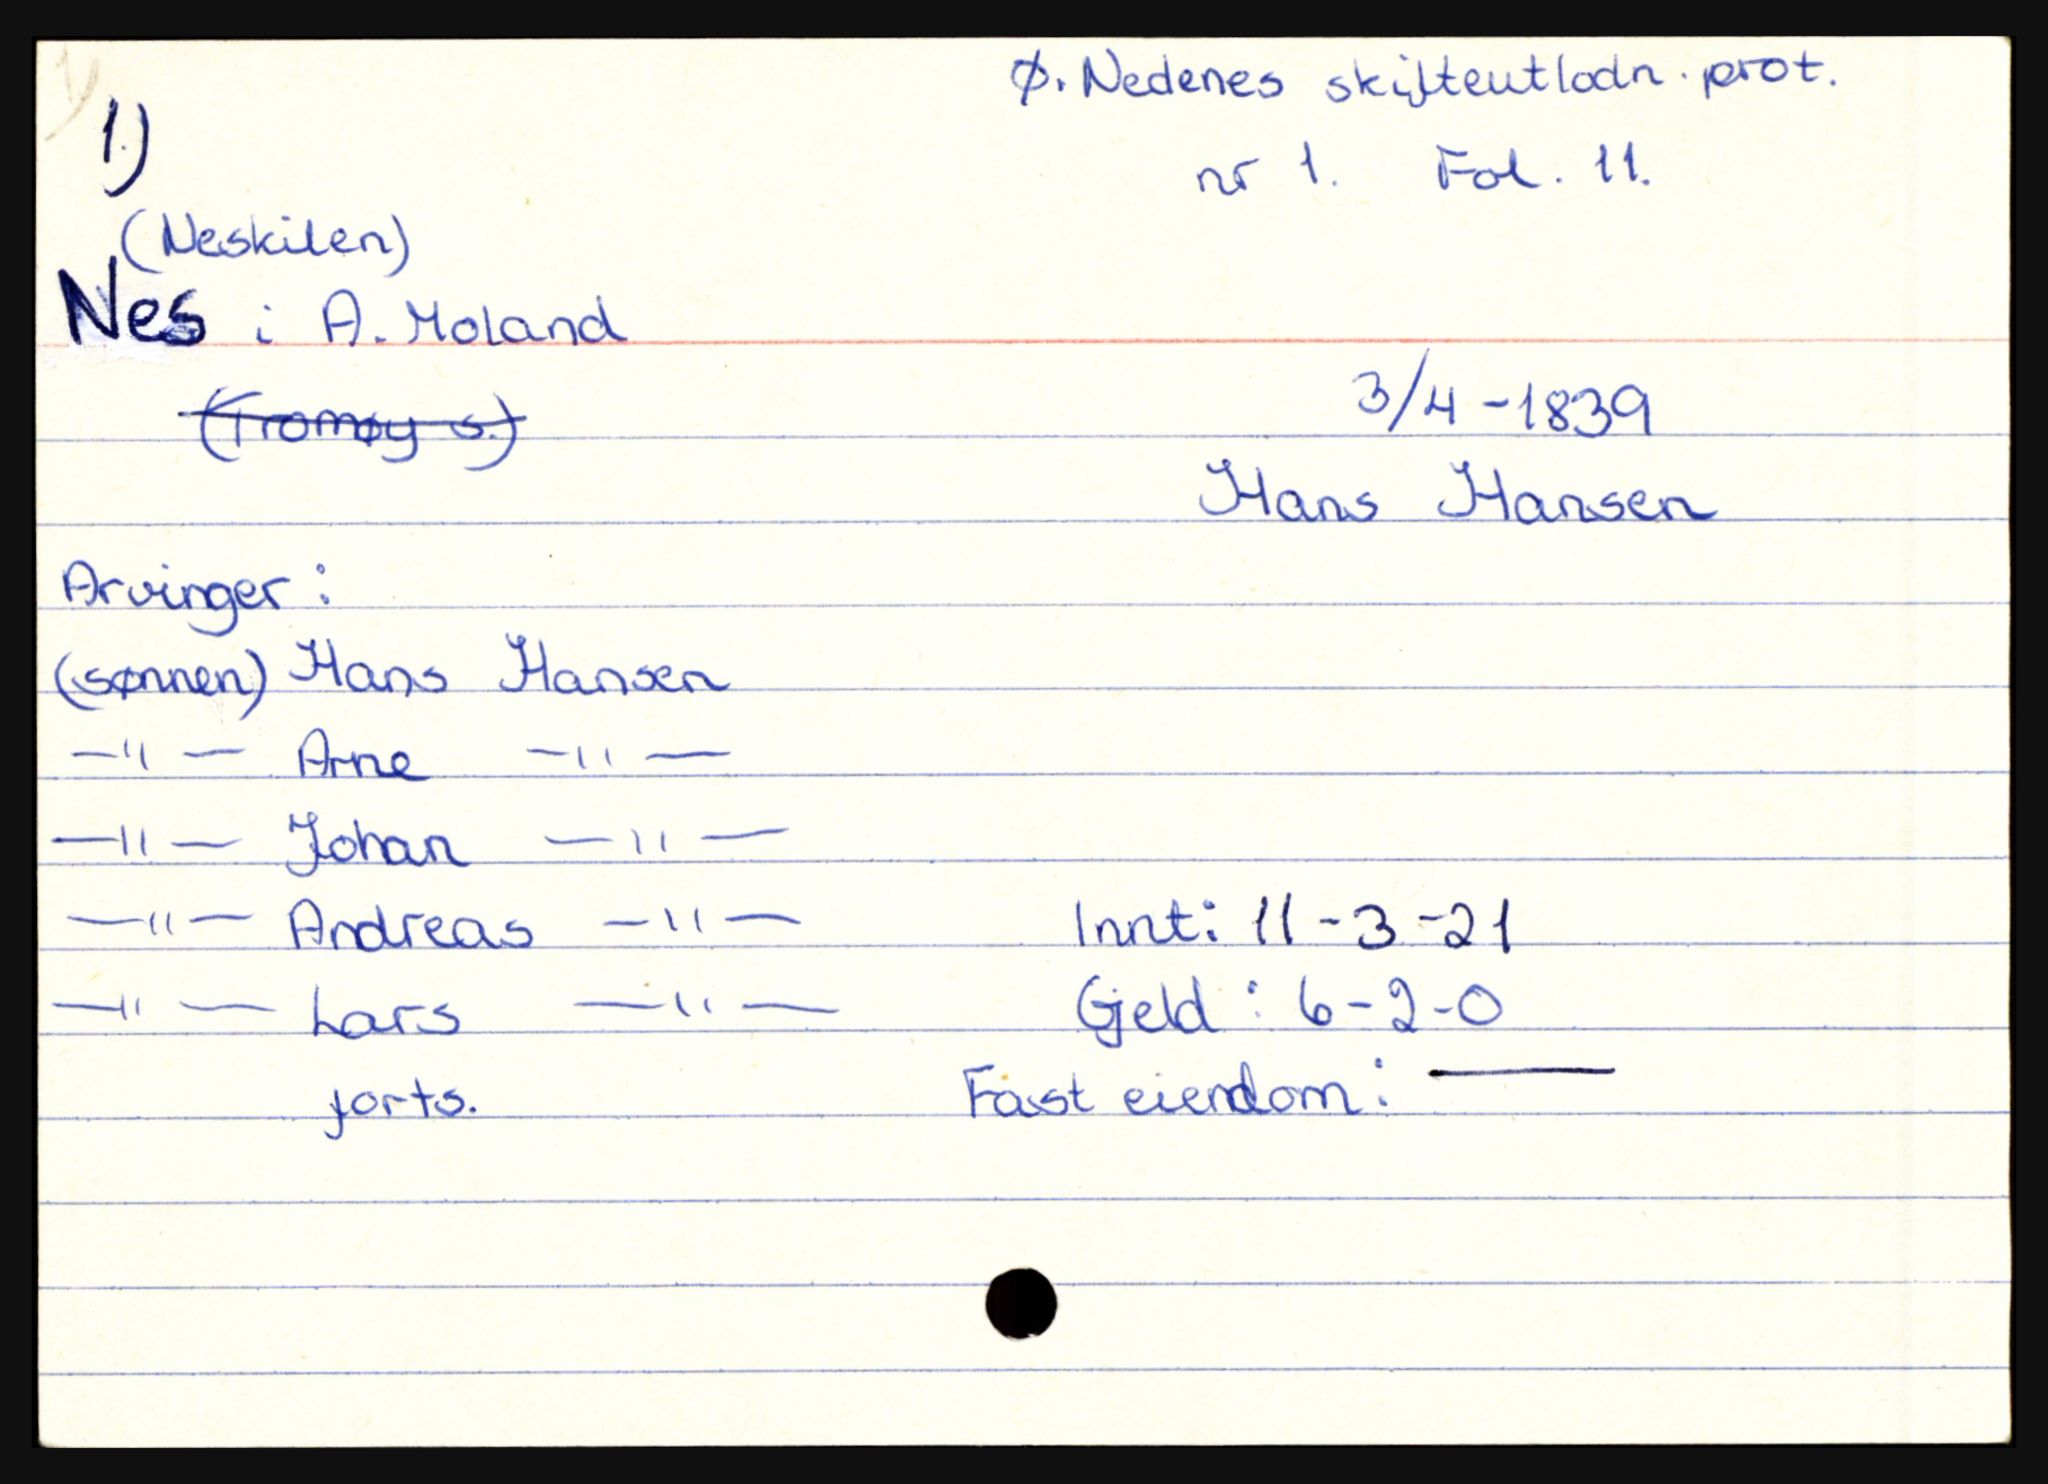 1)
Ø. Nedenes skifteutlodn. prot.
1.)
nr 1. Fol. 11.
(Neskilen)
Nes i A. Moland
(Tromøy s.)
3/4-1839
Hans Hansen
Arvinger:
(sønnen) Hans Hansen
—"— Arne —"—
—"— Johan —"—
—"— Andreas —"—
Innt: 11-3-21
—"— Lars —"—
Gjeld: 6-2-0
forts.
Fast eiendom: —